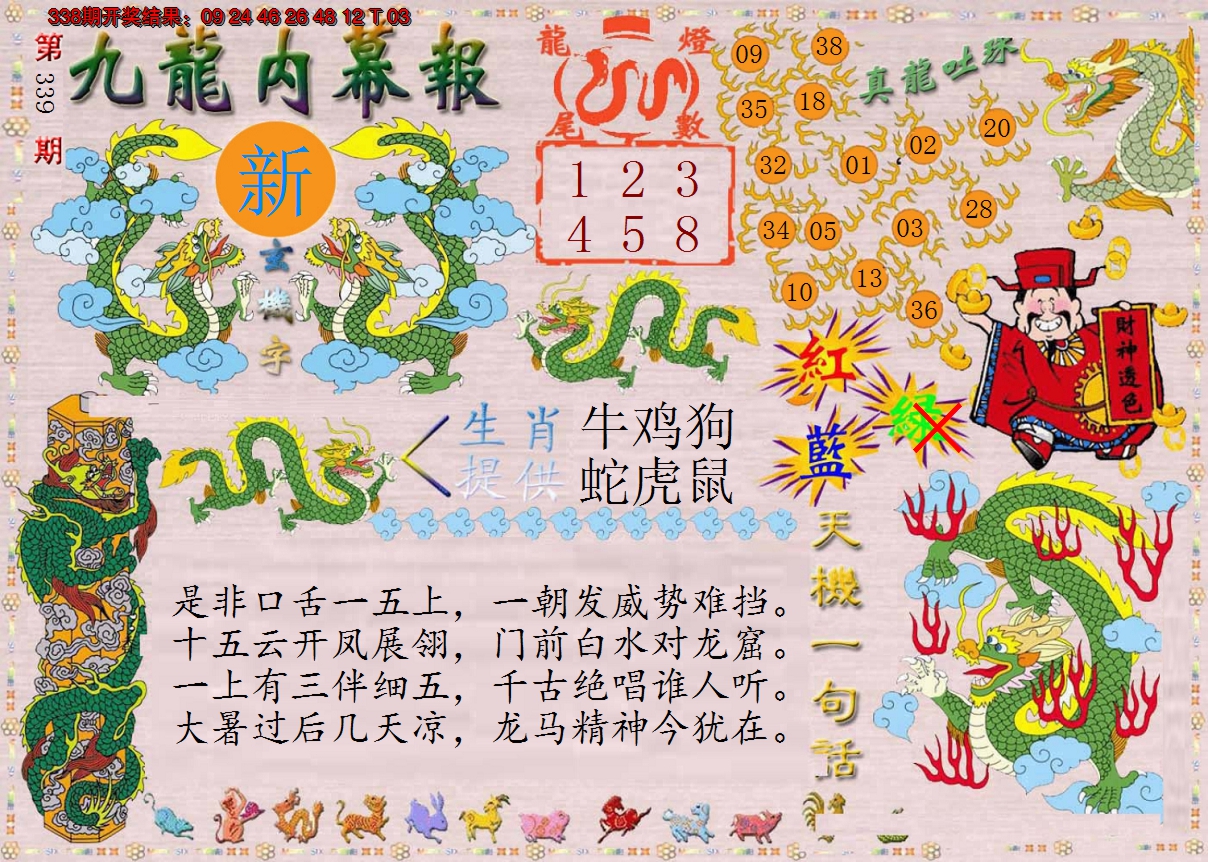 338期开奖结果：09 24 46 26 48 12 T 03
第339期
九龍内幕報
新
玄機字
龍燈尾數
1 2 3
4 5 8
真龍吐珠
09 38
35 18
20
02
32 01
28
34 05 03
13
10
36
紅
綠
藍
財神透色
生肖 牛鸡狗
提供 蛇虎鼠
是非口舌一五上，一朝发威势难挡。
十五云开凤展翎，门前白水对龙窟。
一上有三伴细五，千古绝唱谁人听。
大暑过后几天凉，龙马精神今犹在。
天機一句话